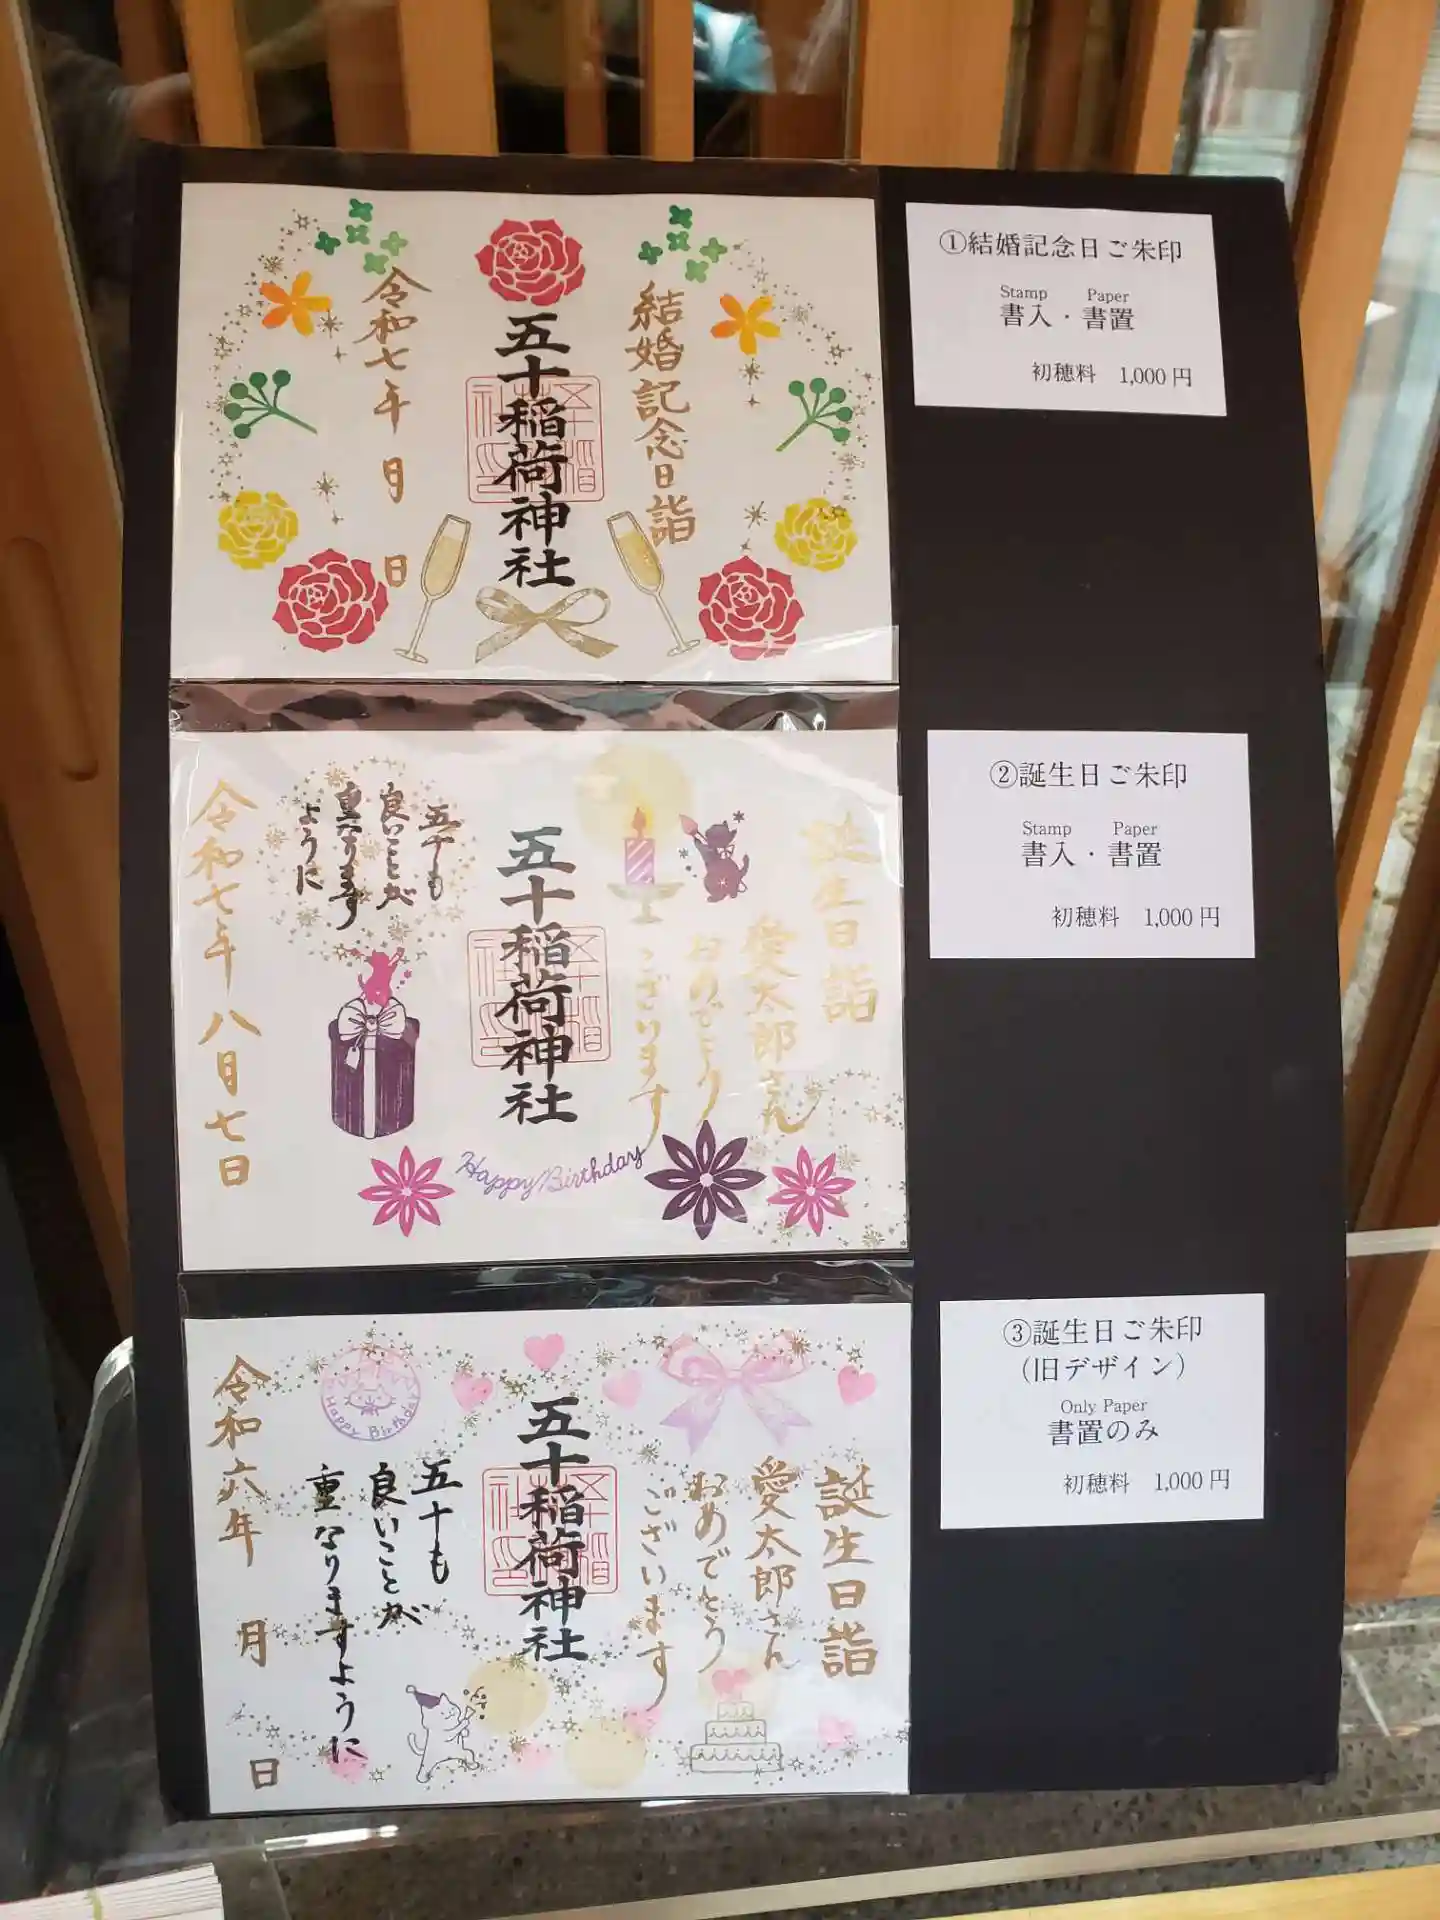 結婚記念日詣
五十稲荷神社
令和七年 月 日
①結婚記念日ご朱印
Stamp Paper
書入・書置
初穂料 1,000円
誕生日詣
愛太郎さん
おめでとう
ございます
五十稲荷神社
五十も
良いことが
重なります
ように
令和七年八月七日
Happy Birthday
②誕生日ご朱印
Stamp Paper
書入・書置
初穂料 1,000円
誕生日詣
愛太郎さん
おめでとう
ございます
五十稲荷神社
五十も
良いことが
重なりますように
令和六年 月 日
Happy Birthday
③誕生日ご朱印
(旧デザイン)
Only Paper
書置のみ
初穂料 1,000円